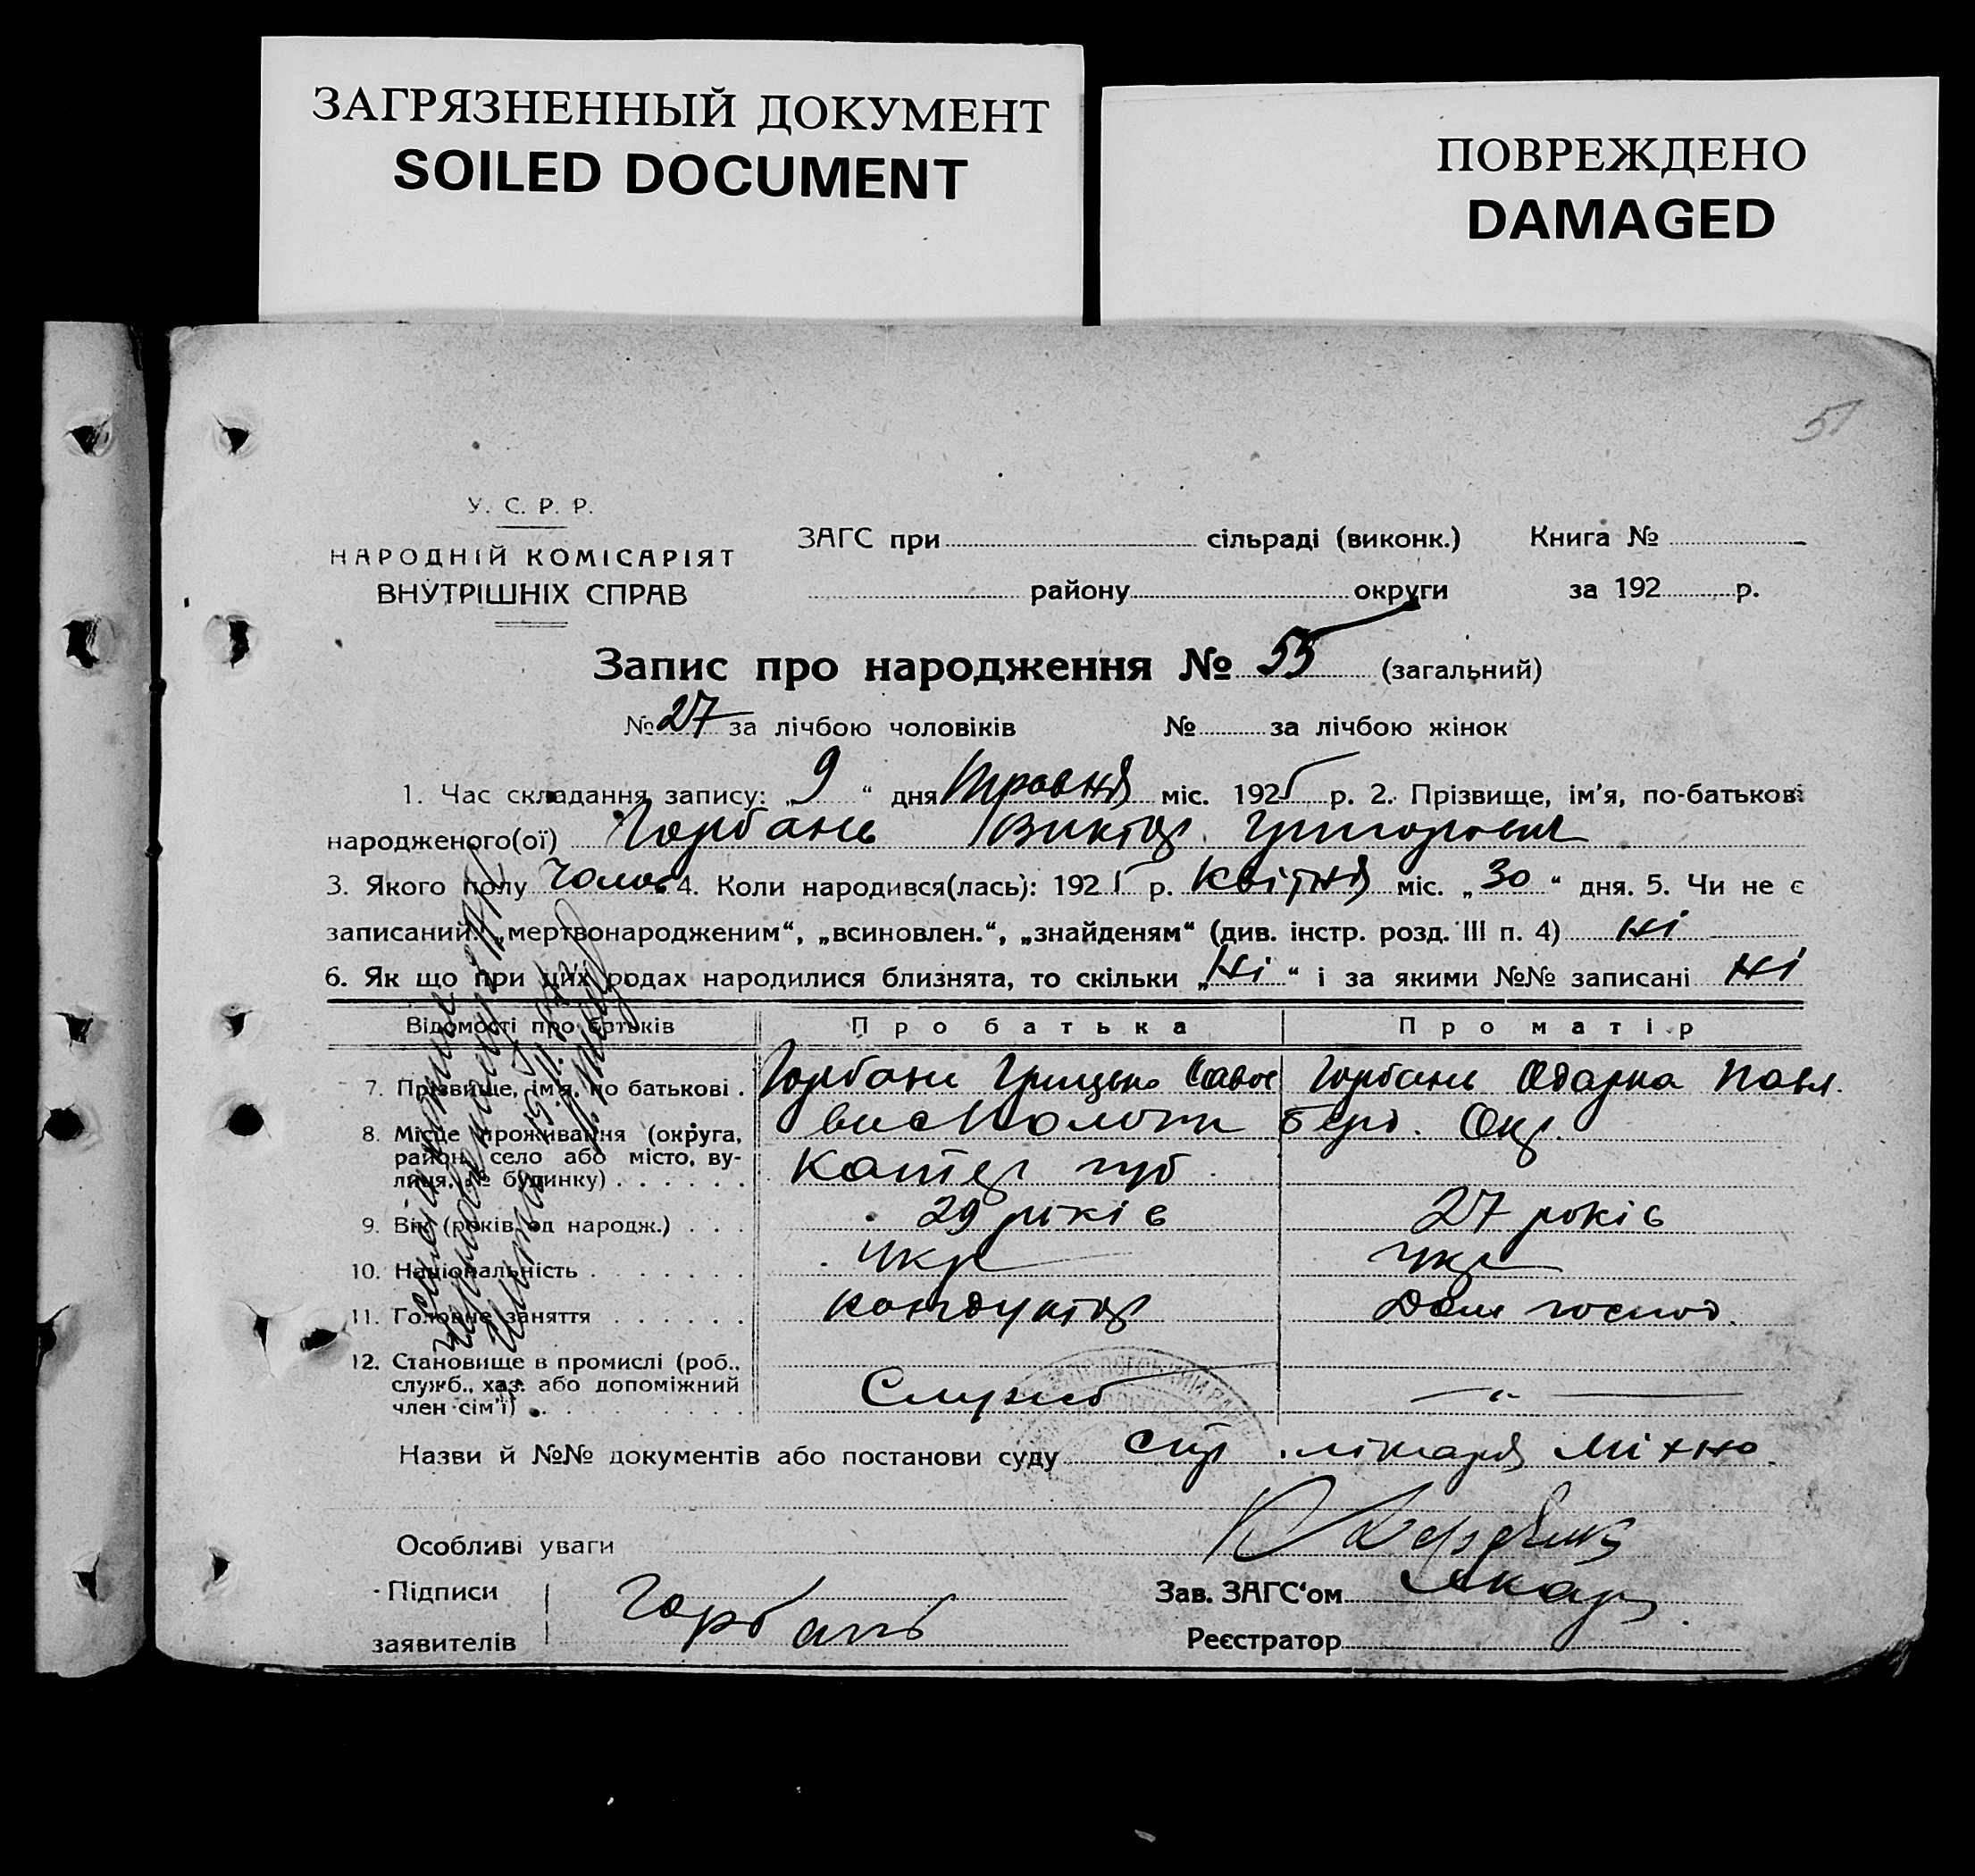 ЗАГРЯЗНЕННЫЙ ДОКУМЕНТ
SOILED DOCUMENT
ПОВРЕЖДЕНО
DAMAGED
51
У. С. Р. Р.
НАРОДНІЙ КОМІСАРІЯТ
ВНУТРІШНІХ СПРАВ
ЗАГС при сільраді (виконк.) Книга №
району округи за 192 р.
Запис про народження № 55 (загальний)
№ 27 за лічбою чоловіків № за лічбою жінок
1. Час складання запису: „9“ дня Травня міс. 1925 р. 2. Прізвище, ім'я, по-батькові
народженого(ої) Горбань Виктор Григорович
3. Якого полу Чолов 4. Коли народився(лась): 192 р. Квітня міс. „30“ дня. 5. Чи не є
записаний: „мертвонародженим“, „всиновлен.“, „знайденям“ (див. інстр. розд. III п. 4) ні
6. Як що при цих родах народилися близнята, то скільки „Ні“ і за якими №№ записані ні
Відомості про батьків Про батька Про матір
7. Прізвище, ім'я, по батькові . Горбань Грицько Савов Горбань Одарка Павл.
8. Місце проживання (округа,
район, село або місто, ву-
лиця, № будинку) . . . . . .
Окр.
Катер губ
9. Вік (років од народж.) . . . 29 років 27 років
10. Національність . . . . . . Укр Укр
11. Головне заняття . . . . . . Кондуктор Дом господ.
12. Становище в промислі (роб.,
служб., хаз. або допоміжний
член сім'ї) . . Служб — " —
Назви й №№ документів або постанови суду лікаря Міхно
Особливі уваги
Підписи
заявителів
Горбань
Зав. ЗАГС'ом
Реєстратор